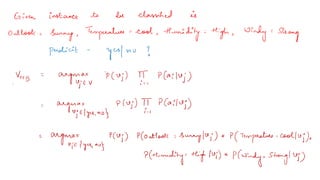 Given instance to be classified is
Outlook : Sunny, Temperature - cool, Humidity - High, Windy : Strong
predict - yes/no ?
V_NB = argmax_{v_j ∈ V} P(v_j) ∏_{i=1} P(a_i/v_j)
= argmax_{v_j ∈ {yes, no}} P(v_j) ∏_{i=1} P(a_i/v_j)
= argmax_{v_j ∈ {yes, no}} P(v_j) P(Outlook : Sunny/v_j) * P(Temperature - Cool/v_j),
P(Humidity - High/v_j) * P(Windy : Strong/v_j)